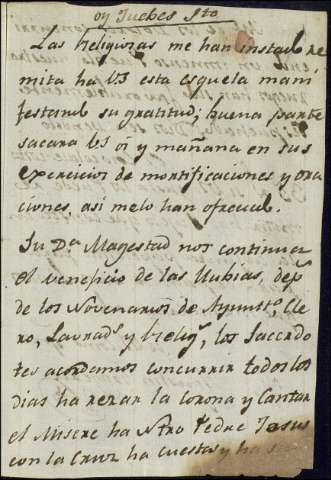 oy Juebes Sto
Las Religiosas me han instado re
mita ha V3 esta esquela mani
festando su gratitud; buena parte
sacara V3 oi y mañana en sus
exercicios de mortificaciones y ora
ciones asi melo han ofrecido.
Su Da Magestad nos continua
el beneficio de las llubias, despˢ
de los Novenarios de Ayuntto, Cle
ro, Lavradˢ y Religˢ, los Sacerdo
tes acordamos concurrir todos los
dias ha rezar la corona y Cantar
el Misere ha Ntro Padre Jesus
con la Cruz ha cuestas y ha